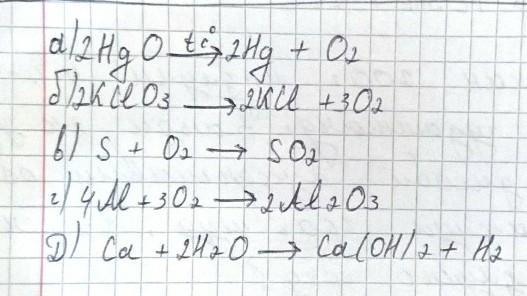 а) 2HgO t c° → 2Hg + O2
б) 2KClO3 → 2KCl + 3O2
в) S + O2 → SO2
г) 4Al + 3O2 → 2Al2O3
Д) Ca + 2H2O → Ca(OH)2 + H2